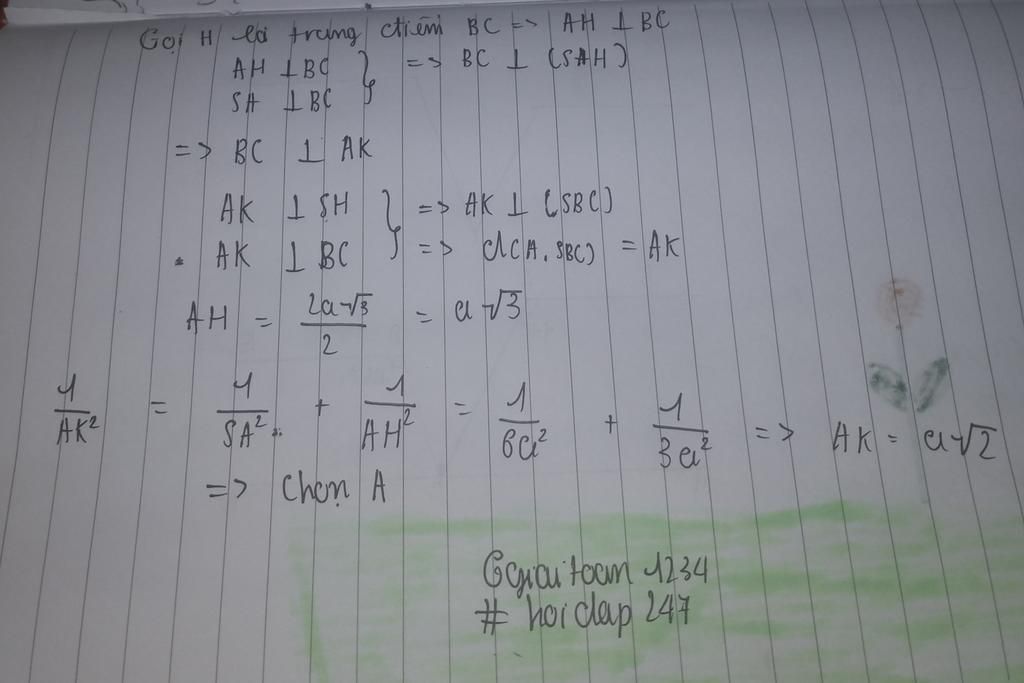 Gọi H là trung điểm BC => AH ⊥ BC
AH ⊥ BC } => BC ⊥ (SAH)
SA ⊥ BC
=> BC ⊥ AK
AK ⊥ SH } => AK ⊥ (SBC)
AK ⊥ BC => d(A, SBC) = AK
AH = 2a√3/2 = a√3
1/AK² = 1/SA² + 1/AH² = 1/6a² + 1/3a² => AK = a√2
=> Chọn A
Ggiaitoan 1234
# hoidap 247